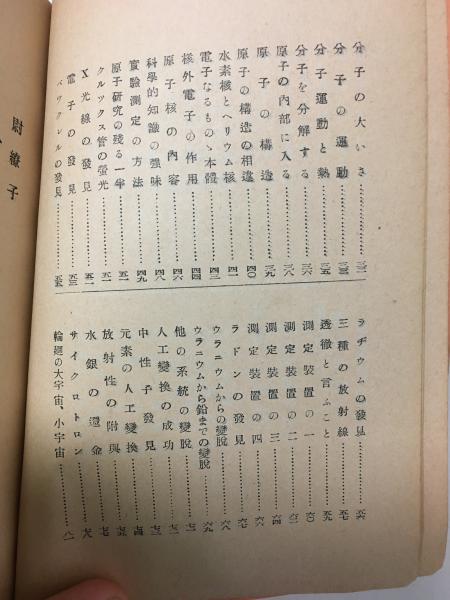 分子の大いさ……三二
分子の運動……三三
分子運動と熱……三五
分子を分解する……三六
原子の內部に入る……三八
原子の構造……三九
原子の構造の相違……四〇
水素核とヘリウム核……四一
電子なるものゝ本體……四三
核外電子の作用……四四
原子核の內容……四六
科學的知識の强味……四八
實驗測定の方法……四九
原子硏究の殘る一半……五一
クルックス管の螢光……五一
X光線の發見……五二
電子の發見……五三
ベックレルの發見……五五
ラヂウムの發見……五六
三種の放射線……五七
透徹と言ふこと……五九
測定裝置の一……六〇
測定裝置の二……六二
測定裝置の三……六四
測定裝置の四……六六
ラドンの發見……六七
ウラニウムからの變脫……六八
ウラニウムから鉛までの變脫……六九
他の系統の變脫……七一
人工變換の成功……七二
中性子發見……七三
元素の人工變換……七四
放射性の附與……七五
水銀の還金……七七
サイクロトロン……七八
輪廻の大宇宙、小宇宙……八一
尉繚子